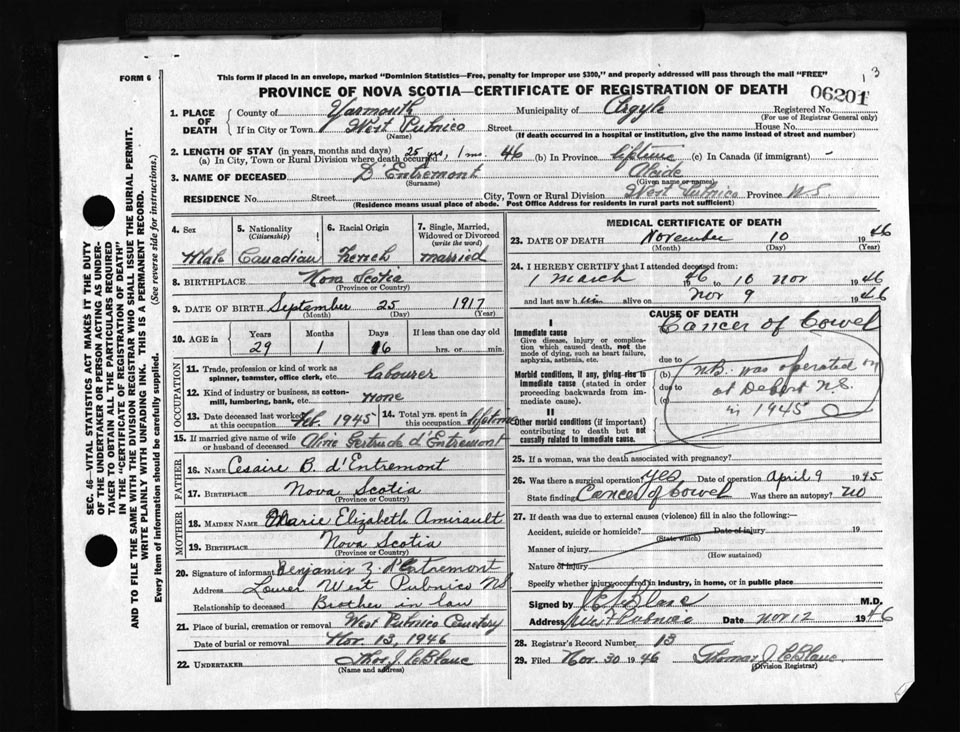 3
1
FORM 6
This form if placed in an envelope, marked "Dominion Statistics—Free, penalty for improper use $300," and properly addressed will pass through the mail "FREE"
PROVINCE OF NOVA SCOTIA—CERTIFICATE OF REGISTRATION OF DEATH
06201
1. PLACE OF DEATH County of Yarmouth Municipality of Argyle Registered No.
(For use of Registrar General only)
If in City or Town West Pubnico Street House No.
(Name) (If death occurred in a hospital or institution, give the name instead of street and number)
2. LENGTH OF STAY (in years, months and days)
(a) In City, Town or Rural Division where death occurred 25 yrs, 1 mo. 46 (b) In Province lifetime (c) In Canada (if immigrant) -
3. NAME OF DECEASED D'Entremont Alcide
(Surname) (Given name or names)
RESIDENCE No. Street City, Town or Rural Division West Pubnico Province N.S
(Residence means usual place of abode. Post Office Address for residents in rural parts not sufficient)
4. Sex 5. Nationality (Citizenship) 6. Racial Origin 7. Single, Married, Widowed or Divorced (write the word)
Male Canadian French married
8. BIRTHPLACE Nova Scotia
(Province or Country)
9. DATE OF BIRTH September 25 1917
(Month) (Day) (Year)
10. AGE in Years Months Days If less than one day old
29 1 16 hrs. or min.
OCCUPATION
11. Trade, profession or kind of work as spinner, teamster, office clerk, etc. labourer
12. Kind of industry or business, as cotton-mill, lumbering, bank, etc. none
13. Date deceased last worked at this occupation Feb. 1945 14. Total yrs. spent in this occupation lifetime
15. If married give name of wife or husband of deceased Aline Gertrude d'Entremont
FATHER
16. NAME Cesaire B. d'Entremont
17. BIRTHPLACE Nova Scotia
(Province or Country)
MOTHER
18. MAIDEN NAME Marie Elizabeth Amirault
19. BIRTHPLACE Nova Scotia
(Province or Country)
20. Signature of informant Benjamin Z. d'Entremont
Address Lower West Pubnico NS
Relationship to deceased Brother in law
21. Place of burial, cremation or removal West Pubnico Cemetery
Date of burial or removal Nov. 13, 1946
22. UNDERTAKER Thos J. LeBlanc
(Name and address)
MEDICAL CERTIFICATE OF DEATH
23. DATE OF DEATH November 10 1946
(Month) (Day) (Year)
24. I HEREBY CERTIFY that I attended deceased from:
1 March 1946 to 10 Nov 1946
and last saw him alive on Nov 9 1946
CAUSE OF DEATH
I
Immediate cause Cancer of bowel
Give disease, injury or complication which caused death, not the mode of dying, such as heart failure, asphyxia, asthenia, etc.
due to
Morbid conditions, if any, giving rise to immediate cause (stated in order proceeding backwards from immediate cause).
(b) N.B. was operated on
due to at Debert N.S.
(c) in 1945
II
Other morbid conditions (if important) contributing to death but not causally related to immediate cause.
25. If a woman, was the death associated with pregnancy?
26. Was there a surgical operation? yes Date of operation April 9 1945
State finding Cancer of bowel Was there an autopsy? no
27. If death was due to external causes (violence) fill in also the following:—
Accident, suicide or homicide? Date of injury 19
(State which)
Manner of injury
(How sustained)
Nature of injury
Specify whether injury occurred in industry, in home, or in public place
Signed by LeBlanc M.D.
Address West Pubnico Date Nov 12 1946
28. Registrar's Record Number 13
29. Filed Nov. 30 1946 Thomas J. LeBlanc
(Division Registrar)
SEC. 46—VITAL STATISTICS ACT MAKES IT THE DUTY
OF THE UNDERTAKER OR PERSON ACTING AS UNDER-
TAKER TO OBTAIN ALL THE PARTICULARS REQUIRED
IN THE "CERTIFICATE OF REGISTRATION OF DEATH"
AND TO FILE THE SAME WITH THE DIVISION REGISTRAR WHO SHALL ISSUE THE BURIAL PERMIT.
WRITE PLAINLY WITH UNFADING INK. THIS IS A PERMANENT RECORD.
Every item of information should be carefully supplied. (See reverse side for instructions.)